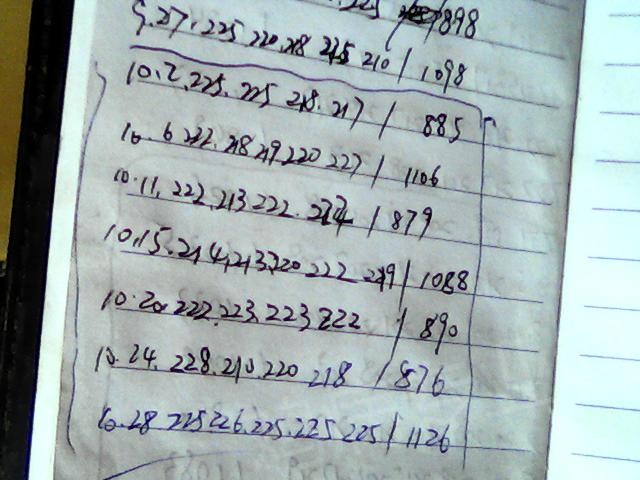 225 / 898
9.27. 225 220 218 225 210 / 1098
10.2. 225. 225 218. 217 / 885
10. 6 222. 218 219. 220 227 / 1106
10.11. 222. 213 222. / 879
10.15. 214, 213, 220 222 219 / 1088
10.20. 222. 223. 223. 222 / 890
10. 24. 228. 210. 220 218 / 876
10.28 225 226. 225. 225 225 / 1126